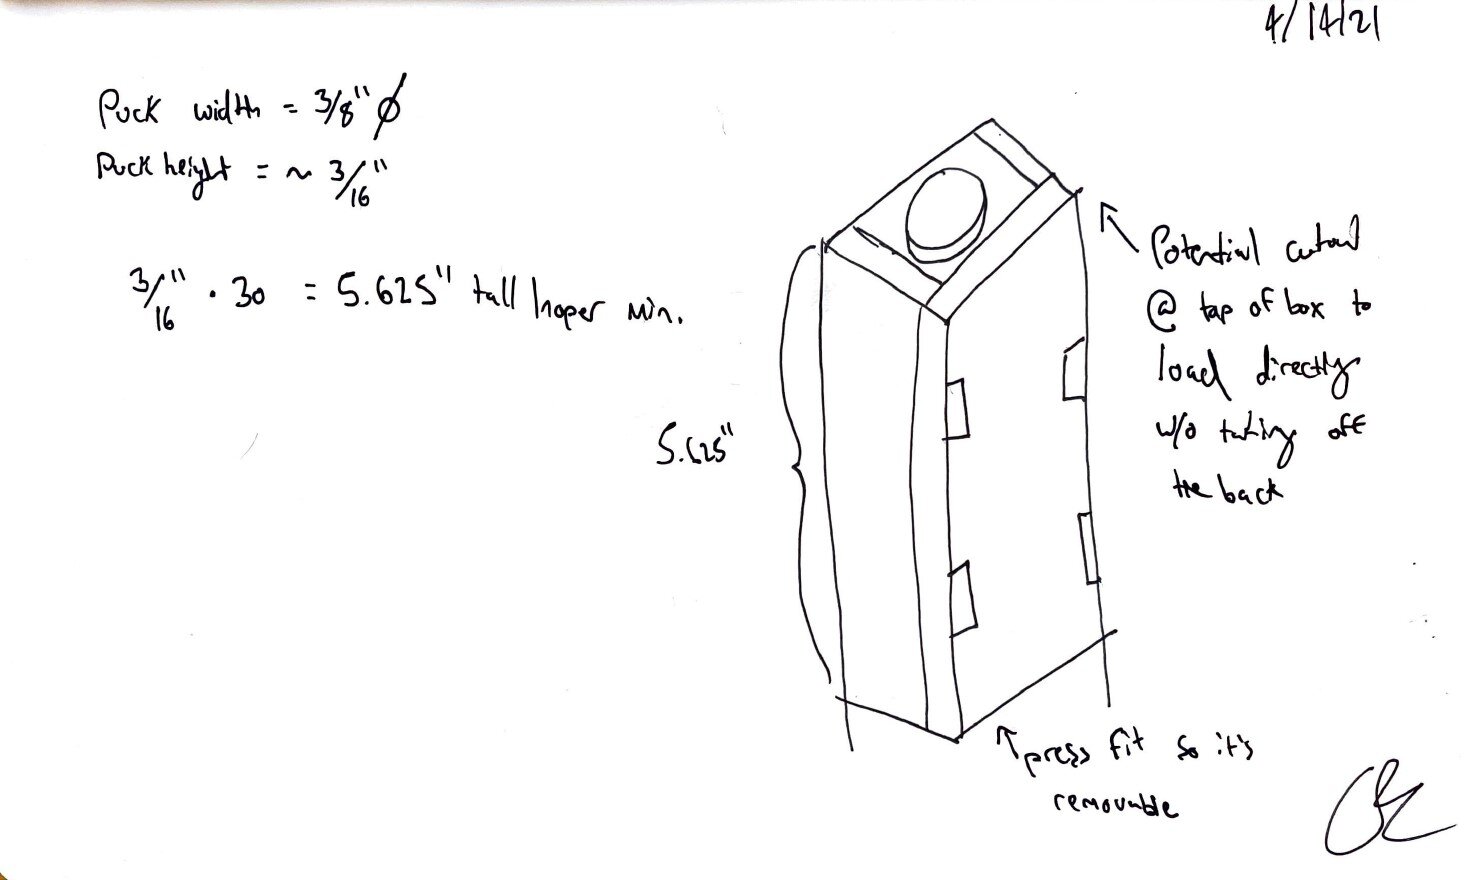 4/14/21
Puck width = 3/8" ϕ
Puck height = ~ 3/16"
3/16" · 30 = 5.625" tall hoper min.
5.625"
Potential cutout
@ top of box to
load directly
w/o taking off
the back
press fit so it's
removable